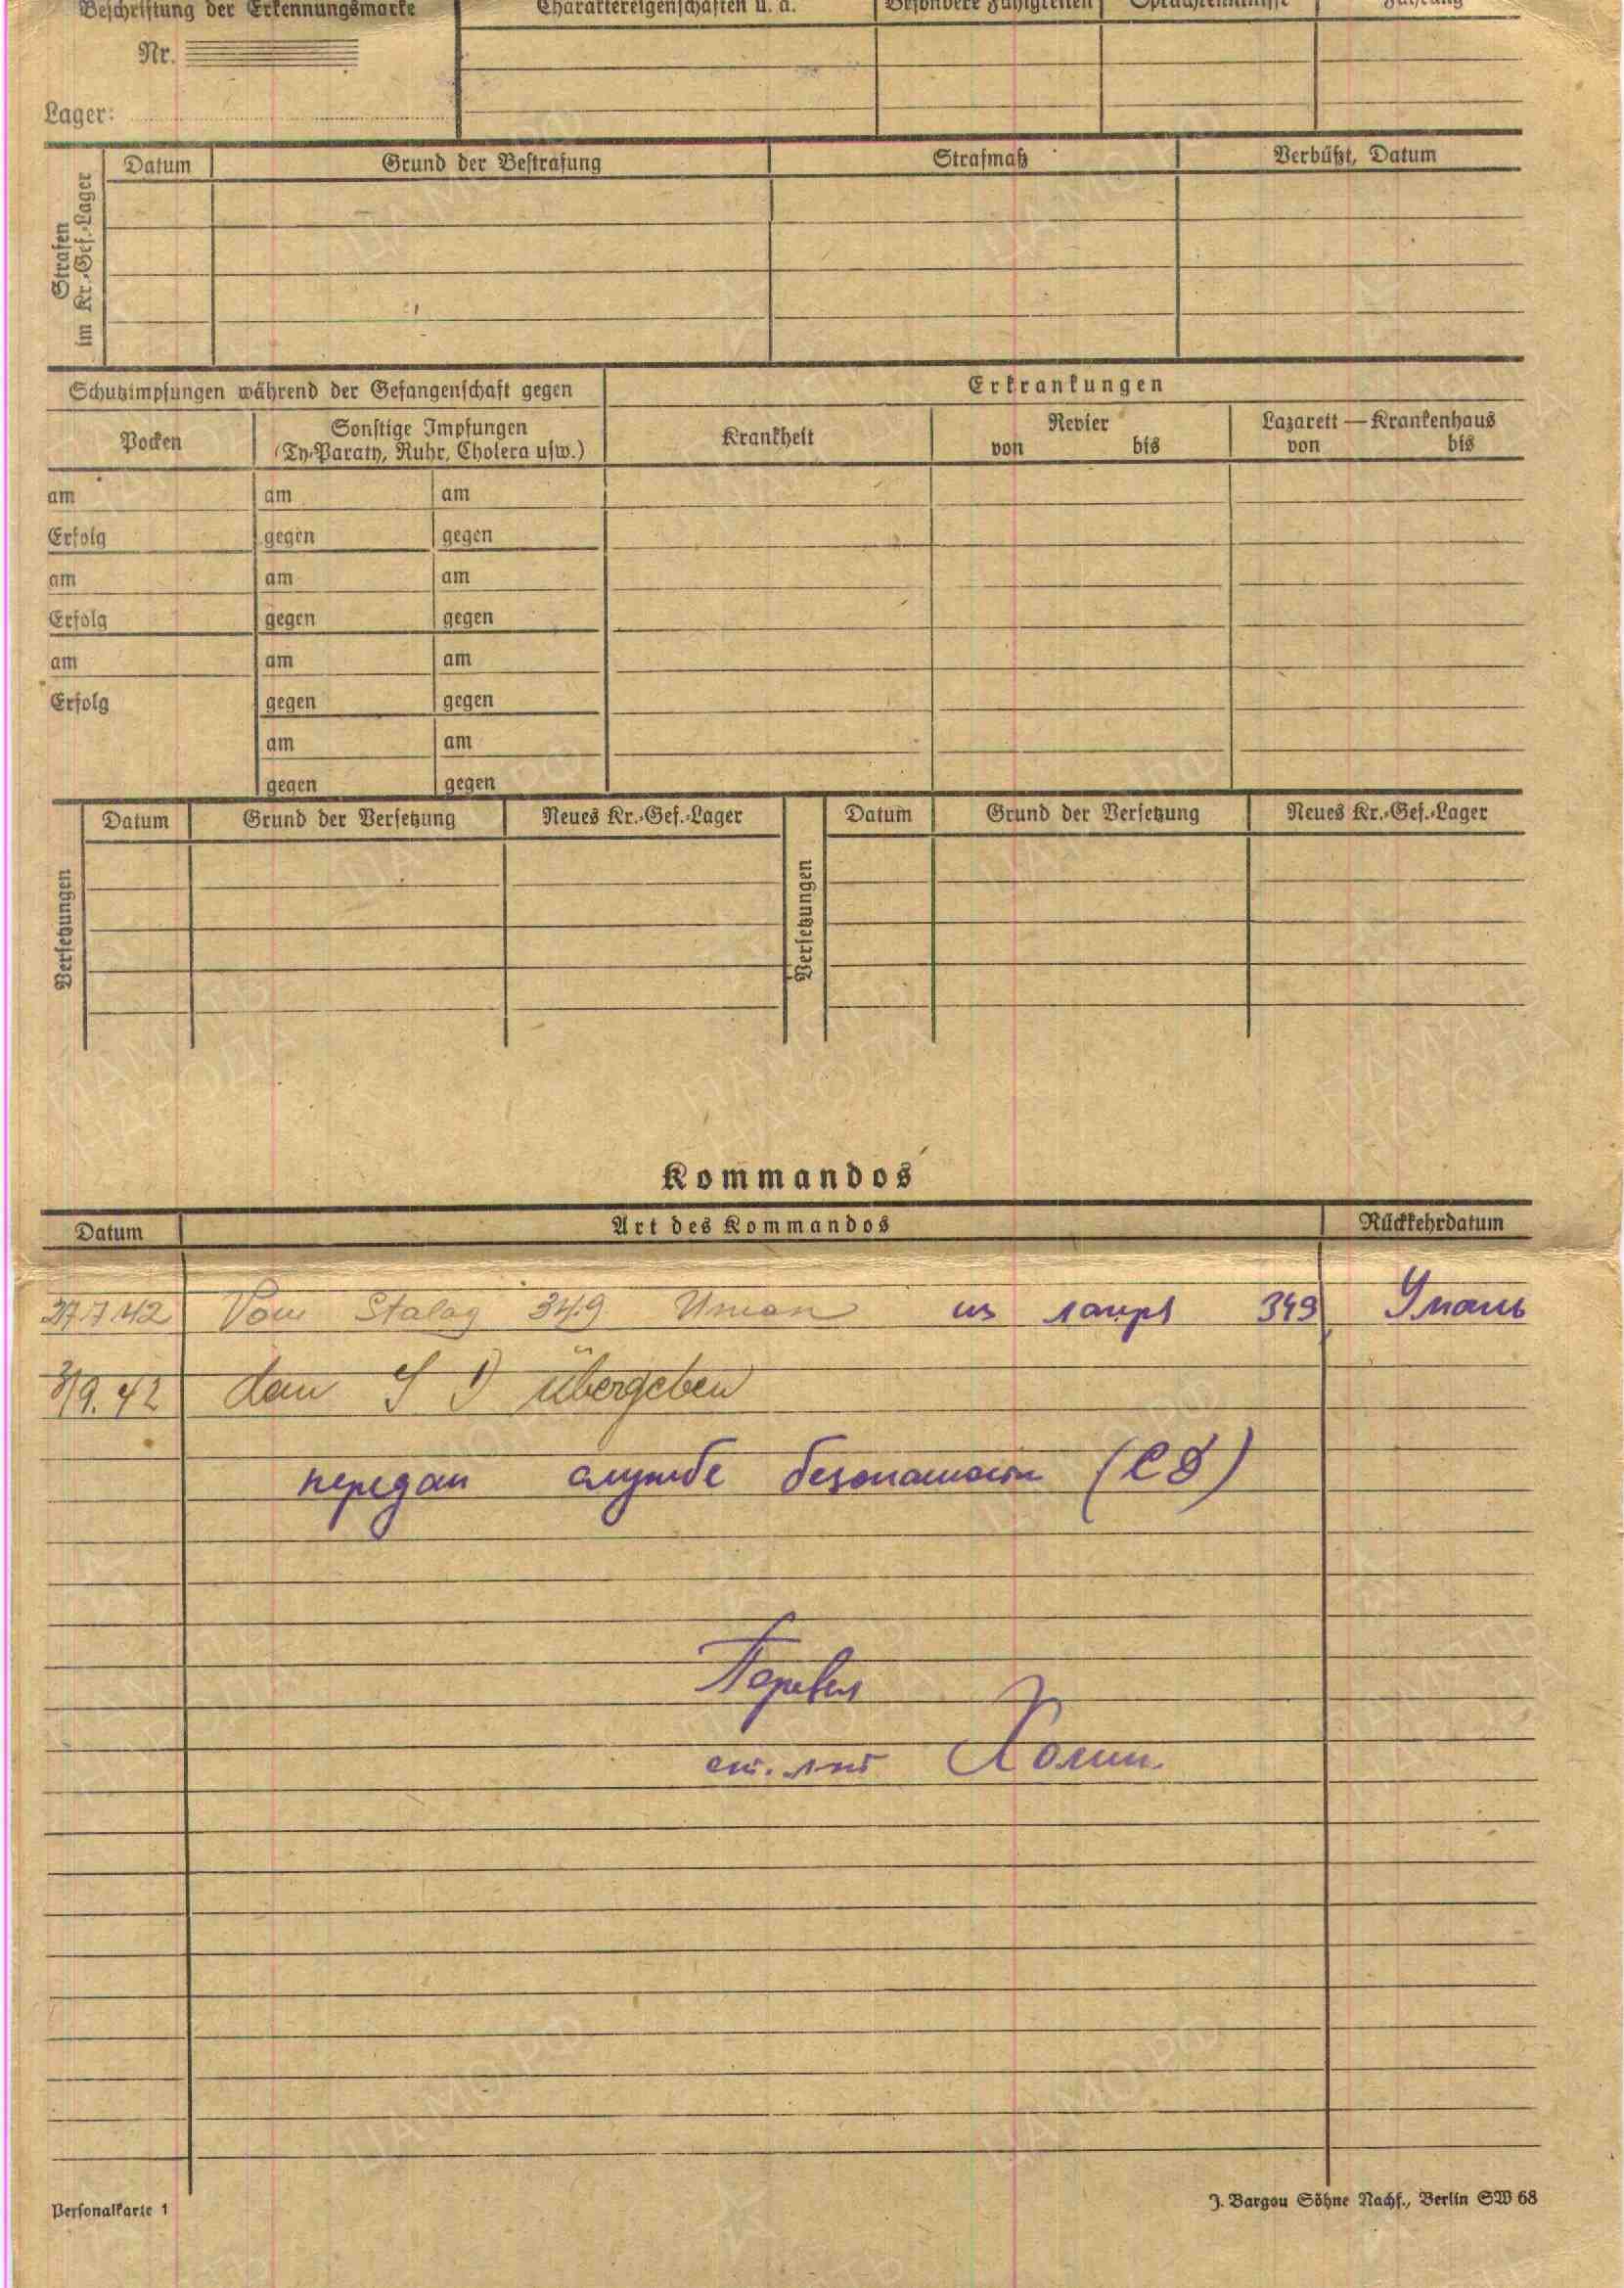 Beschriftung der Erkennungsmarke
Charaktereigenschaften u. a.
Besondere Fähigkeiten
Sprachkenntnisse
Führung
Nr.
Lager:
Strafen im Kr.-Gef.-Lager
Datum
Grund der Bestrafung
Strafmaß
Verbüßt, Datum
Schutzimpfungen während der Gefangenschaft gegen
Erkrankungen
Pocken
Sonstige Impfungen
(Ty-Paraty, Ruhr, Cholera usw.)
Krankheit
Revier
von bis
Lazarett — Krankenhaus
von bis
am am am
Erfolg gegen gegen
am am am
Erfolg gegen gegen
am am am
Erfolg gegen gegen
am am
gegen gegen
Versetzungen
Datum
Grund der Versetzung
Neues Kr.-Gef.-Lager
Versetzungen
Datum
Grund der Versetzung
Neues Kr.-Gef.-Lager
Kommandos
Datum
Art des Kommandos
Rückkehrdatum
27.7.42 Vom Stalag 349 Uman из лагеря 349 Умань
9.42 dem S D übergeben
передан службе безопасности (СД)
Перевел
ст. л-т Холин.
Personalkarte 1
J. Bargou Söhne Nachf., Berlin SW 68
ПАМЯТЬ
НАРОДА
ЦАМО РФ